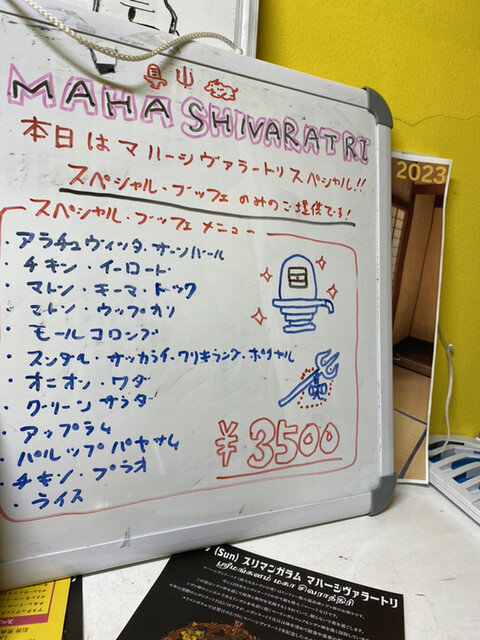 MAHA SHIVARATRI
本日はマハーシヴァラートリスペシャル!!
スペシャル・ブッフェのみのご提供です!
スペシャル・ブッフェメニュー
・アラチュヴィッタ・サンバール
・チキン・イーロート
・マトン・キーマ・トック
・マトン・ウップカリ
・モールコロンブ
・スンダル・サッカライ・ワリキランブ・ポリヤル
・オニオン・ワダ
・グリーンサラダ
・アップラム
・パルップパヤサム
・チキン・プラオ
・ライス
¥3500
2023
(Sun) スリマンガラム マハーシヴァラートリ
ஸ்ரீமங்களம் மகா சிவராத்திரி